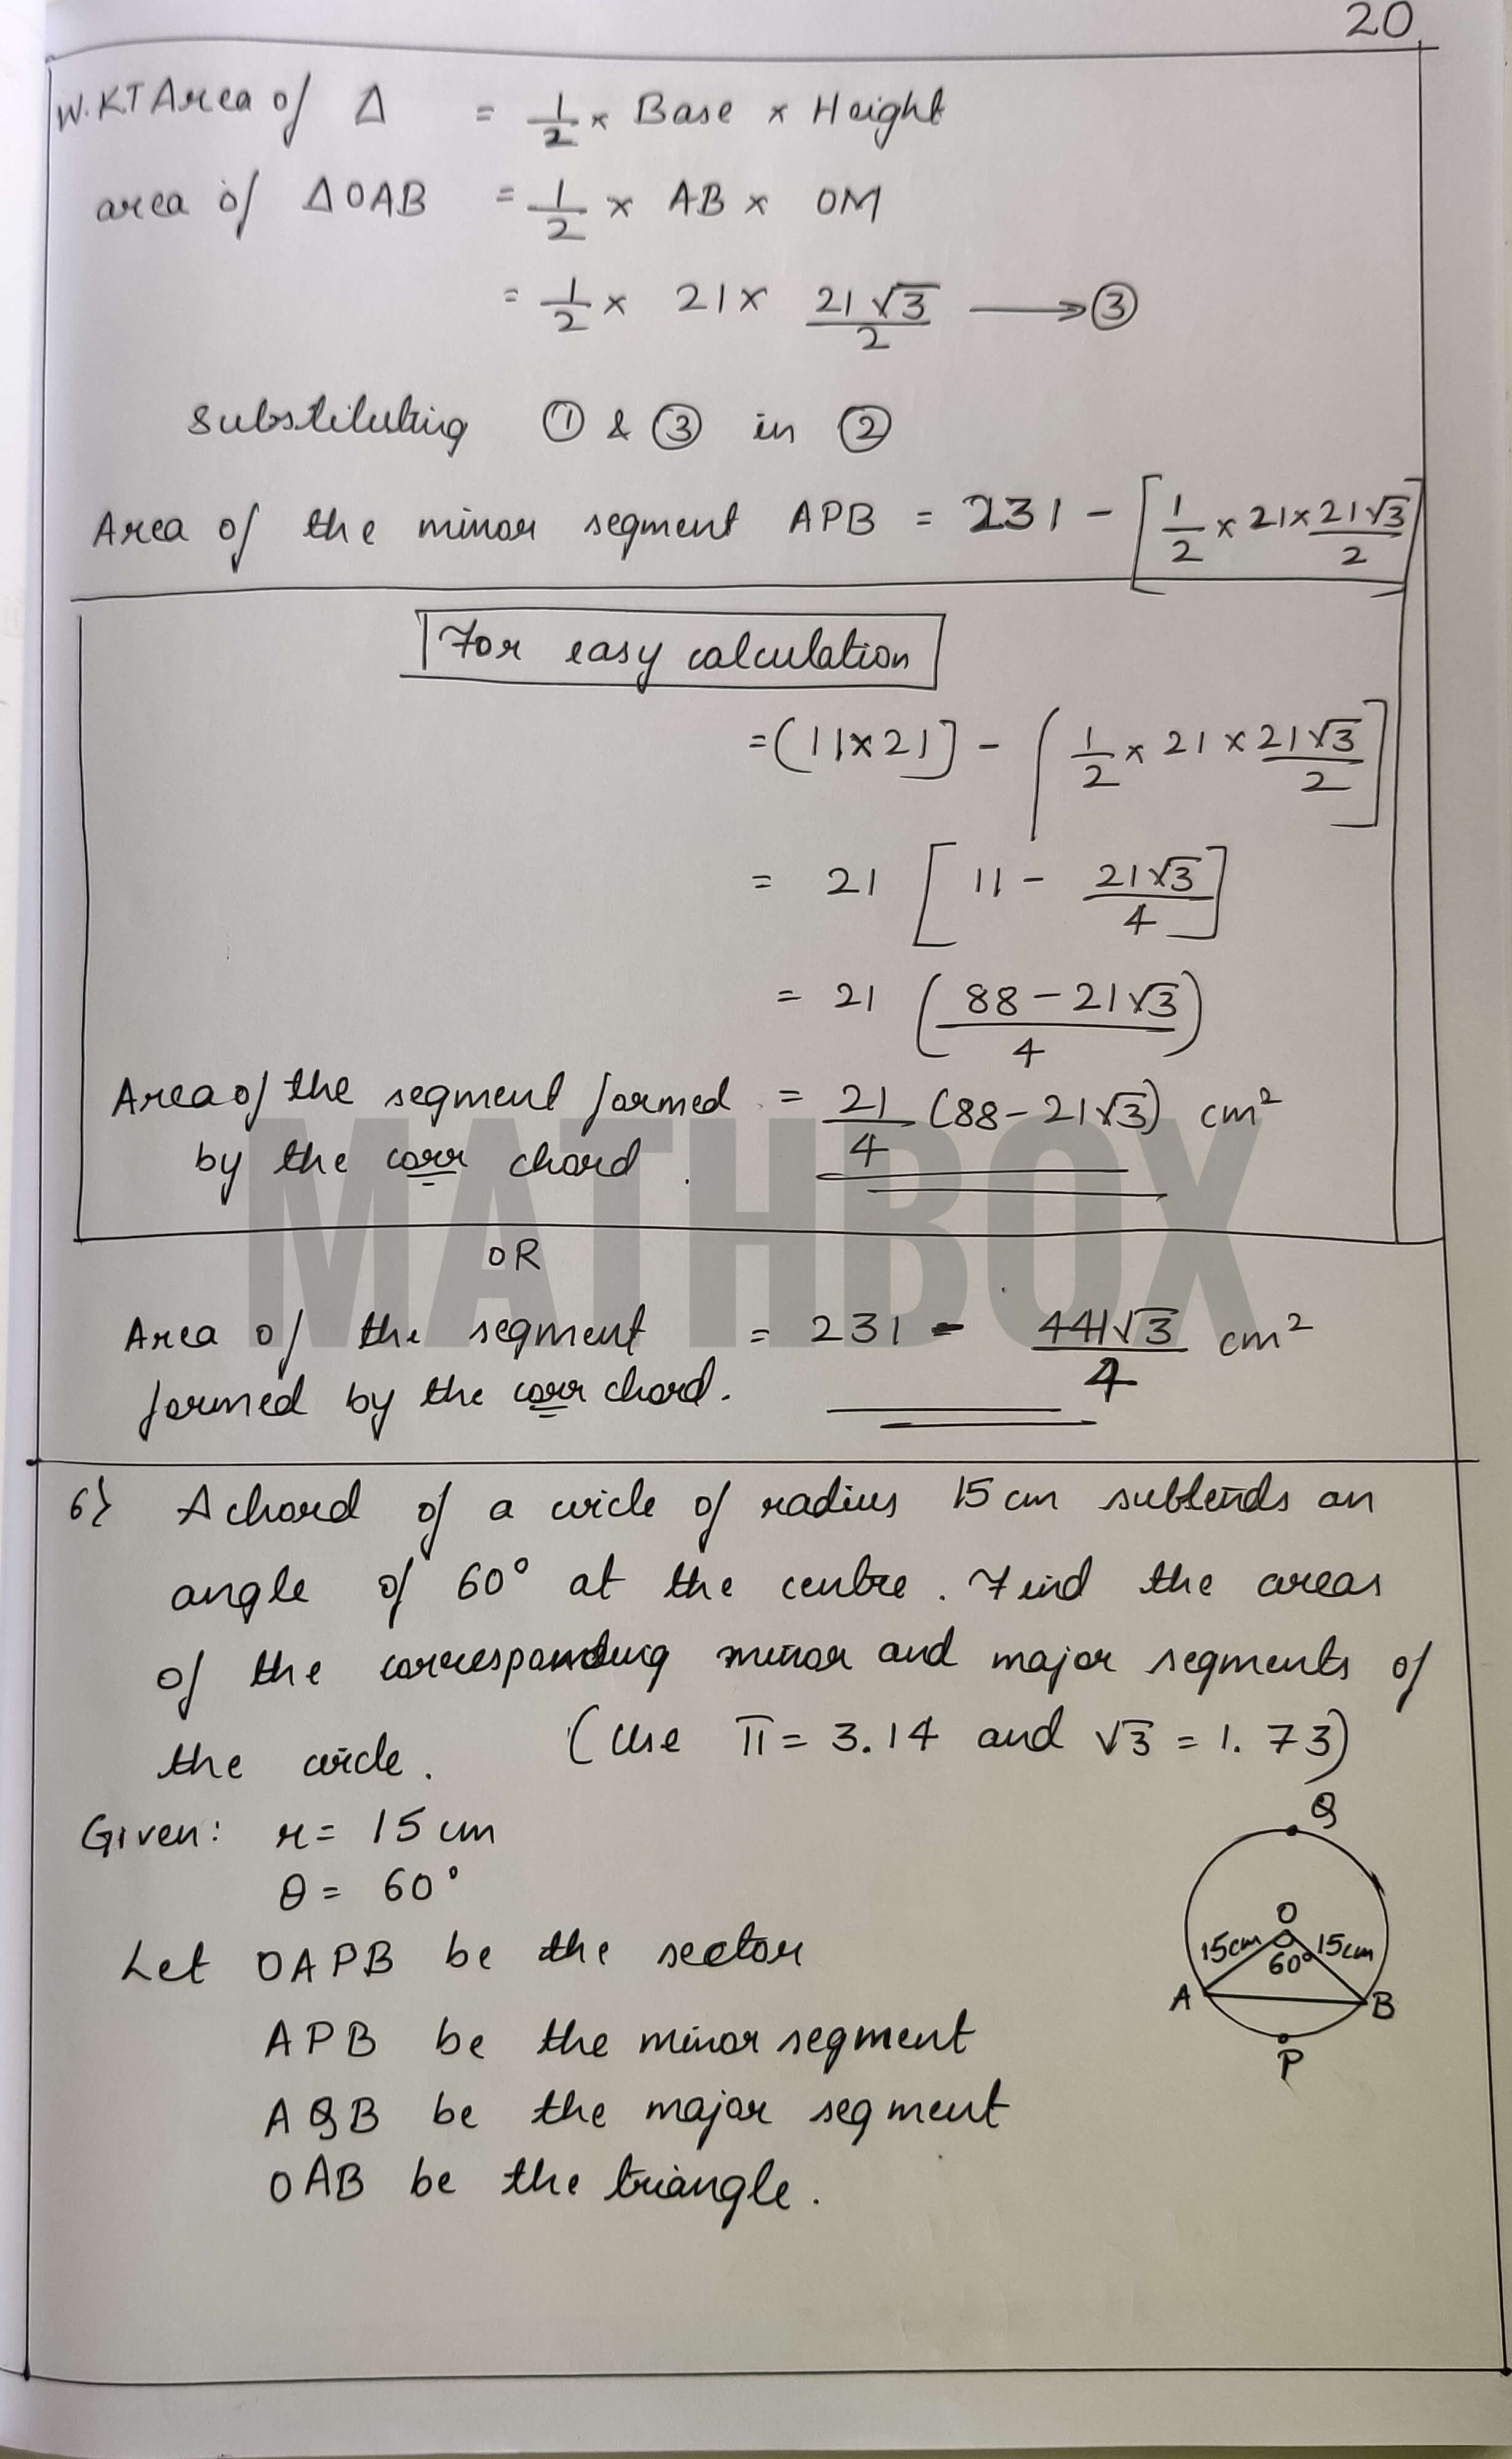 20
W.K.T Area of Δ = 1/2 × Base × Height
area of ΔOAB = 1/2 × AB × OM
= 1/2 × 21 × 21√3/2 ⟶ ③
Substituting ① & ③ in ②
Area of the minor segment APB = 231 - [1/2 × 21 × 21√3/2]
For easy calculation
= (11×21] - [1/2 × 21 × 21√3/2]
= 21 [11 - 21√3/4]
= 21 (88 - 21√3/4)
Area of the segment formed = 21/4 (88 - 21√3) cm²
by the corr chord.
MATHBOX
OR
Area of the segment = 231 - 441√3/4 cm²
formed by the corr chord.
6} A chord of a circle of radius 15 cm subtends an
angle of 60° at the centre. Find the areas
of the corresponding minor and major segments of
the circle. (Use π = 3.14 and √3 = 1.73)
Given: r = 15 cm
θ = 60°
Let OAPB be the sector
APB be the minor segment
AQB be the major segment
OAB be the triangle.
Q
O
15cm 60° 15cm
A B
P